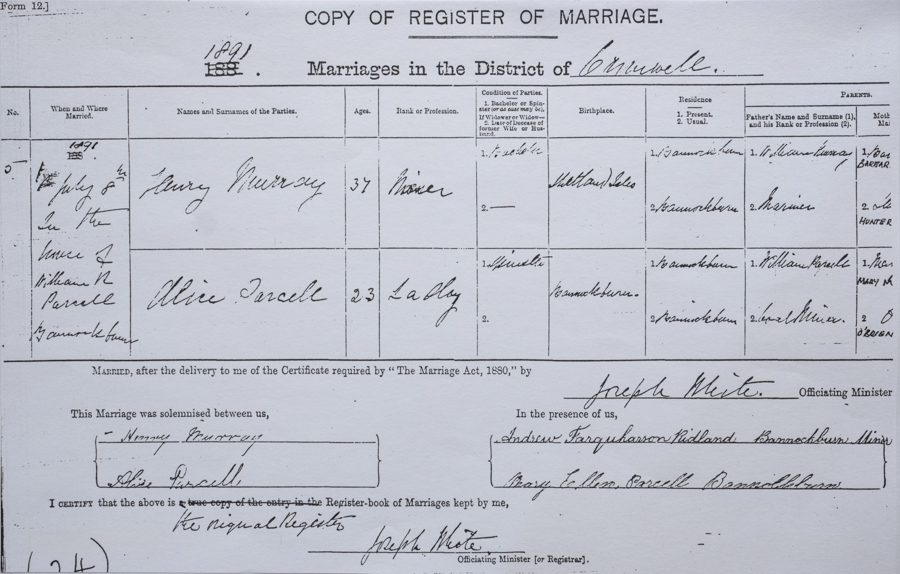 Form 12.]
COPY OF REGISTER OF MARRIAGE.
1891
188 .
Marriages in the District of Cromwell.
No.
When and Where Married.
Names and Surnames of the Parties.
Ages.
Rank or Profession.
Condition of Parties.
1. Bachelor or Spinster (or as case may be).
If Widower or Widow—
2. Date of Decease of former Wife or Husband.
Birthplace.
Residence
1. Present.
2. Usual.
PARENTS.
Father's Name and Surname (1), and his Rank or Profession (2).
Moth
Mai
5
1891
188
July 8th
In the
house of
William
Parcell
Bannockburn
Henry Murray
37
Miner
1. Bachelor
2. —
Shetland Isles
1. Bannockburn
2. Bannockburn
1. William Murray
2. Mariner
1.
BARBAR
2
HUNTER
Alice Parcell
23
Lady
1. Spinster
2.
Bannockburn.
1. Bannockburn
2. Bannockburn
1. William Parcell
2. Coal Miner
1. Mar
MARY
2 O
O'BRIEN
MARRIED, after the delivery to me of the Certificate required by "The Marriage Act, 1880," by
Joseph White. Officiating Minister
This Marriage was solemnised between us,
In the presence of us,
Henry Murray
Andrew Farquharson Ridland Bannockburn Miner
Alice Parcell
Mary Ellen Parcell Bannockburn
I CERTIFY that the above is a true copy of the entry in the Register-book of Marriages kept by me,
the original Register
Joseph White.
Officiating Minister [or Registrar].
(24)